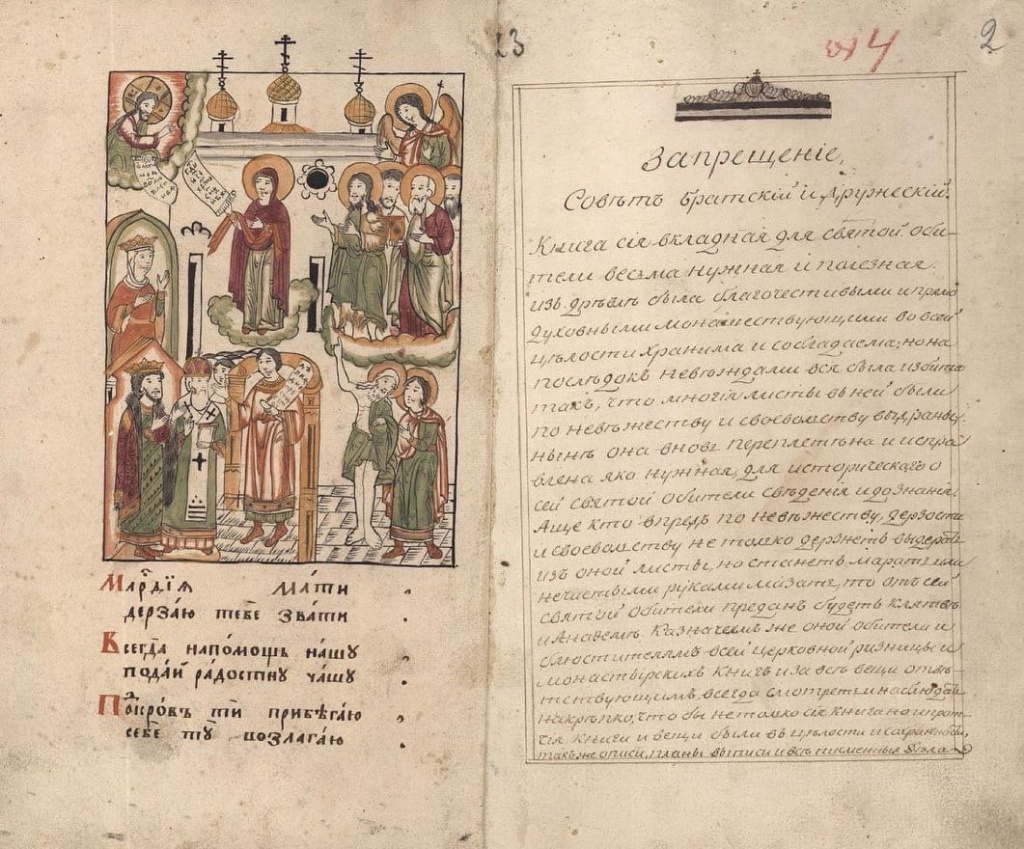 23
4
2
Марїя мати
дерзаю тебе звати
Всегда напомощь нашу
подай радостну чашу
Покровъ ти прибѣгаю
себе ту возлагаю
Запрещенїе,
Совѣтъ братскїй и дружескїй.
Книга сїя вкладная для святой оби-
тели весма нужная и полезная.
изъ древлѣ была благочестивыми и
духовными монашествующими во всей
цѣлости хранима и соблюдаема; но на
послѣдокъ невѣждами вся была избита
такъ, что многїя листы въ ней были
по невѣжеству и своевольству выдраны
нынѣ она вновь переплетена и испра-
влена яко нужная, для историческаго о
сей святой обители свѣденїя и дознанїя.
Аще кто впредь по невѣжеству, дерзости
и своевольству не только дерзнетъ выдерать
изъ оной листы, но станетъ марать или
нечистыми руками мазать, то отъ сей
святой обители преданъ будетъ клятвѣ
и Анафемѣ. Казначеямъ же оной обители и
блюстителямъ всей церковной ризницы и
монастырскихъ книгъ и за всѣ вещи отвѣ-
тствующимъ, всегда смотреть и наблюдать
накрѣпко, что бы не только сїя книга но и проч-
їя книги и вещи были въ цѣлости и сохранности,
такъ же описи, планы выписи и всѣ писменныя дѣла